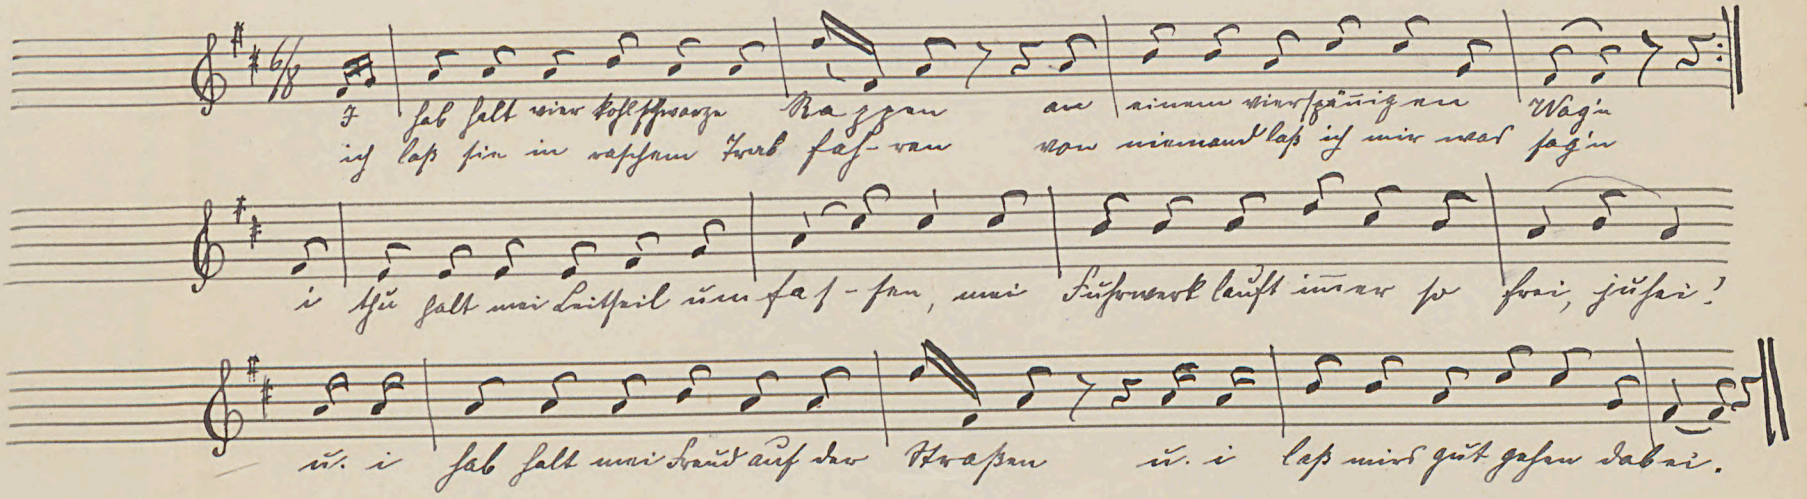 6/8
I hab halt vier kohlschwarze Rappen an einem vierspänigen Wag'n
ich laß sie in raschem Trab fah-ren von niemand laß ich mir was sag'n
i thu halt mei Leitseil umfas-sen, mei Fuhrwerk lauft im̅er so frei, juhei!
u. i hab halt mei Freud auf der Straßen u. i laß mirs gut gehen dabei.